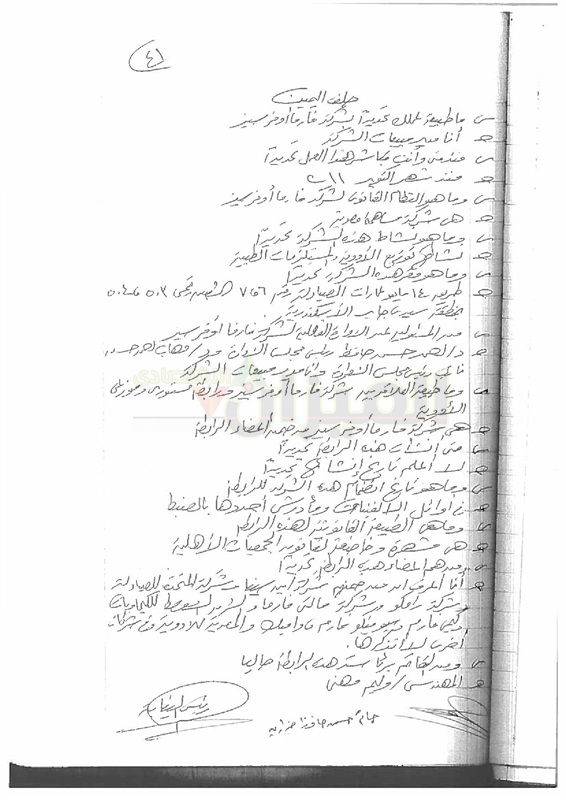 ٤١
حلف اليمين
س ما طبيعة عملك تحديدا لشركة فارما أوفر سيز
ج أنا مدير مبيعات الشركة
س منذ متى وأنت تباشر هذا العمل تحديدا
ج منذ شهر
س وما هو النظام القانوني لشركة فارما أوفر سيز
ج هي شركة مساهمة مصرية
س وما هو نشاط هذه الشركة تحديدا
ج نشاطها توزيع الأدوية والمستلزمات الطبية
س وما هو مقر هذه الشركة تحديدا
ج طريق ١٤ مايو عمارات الصيادلة رقم
سيدي جابر الأسكندرية
س من المسئولين عن الادارة الفعلية لشركة فارما أوفر سيز
ج د/ أحمد حسن حافظ رئيس مجلس الادارة
نائب رئيس مجلس الادارة وأنا مدير مبيعات الشركة
س وما طبيعة العلاقة بين شركة فارما أوفر سيز ورابطة مستوردي وموزعي
الأدوية
ج هي شركة فارما أوفر سيز من ضمن أعضاء الرابطة
س متى أنشأت هذه الرابطة تحديدا
ج لا أعلم تاريخ إنشائها تحديدا
س وما هو تاريخ انضمام هذه الشركة للرابطة
ج في أوائل الألفينات ومقدرش أحددها بالضبط
س وما هي الطبيعة القانونية لهذه الرابطة
ج هي مشهرة وخاضعة لقانون الجمعيات الأهلية
س من هم أعضاء هذه الرابطة تحديدا
ج أنا أعرف ان من ضمنهم شركة ابن سينا وشركة المتحدة للصيادلة
وشركة رامكو وشركة مالتي فارما والشرق الأوسط للكيماويات
والمصرية للأدوية وفي شركات
أخرى لا أتذكرها.
س ومن القائم برئاسة هذه الرابطة حاليا
ج المهندس / وليم
رئيس النيابة